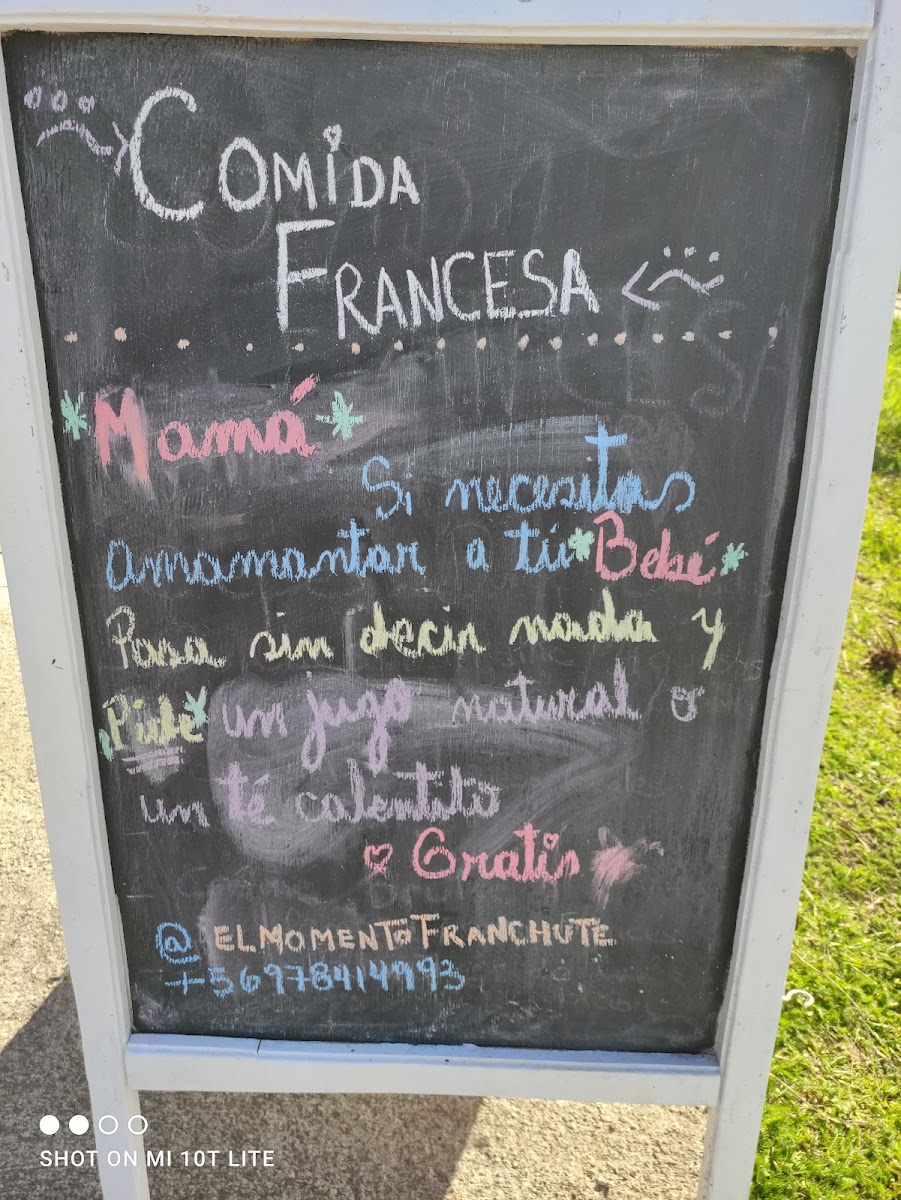 COMIDA
FRANCESA
Mamá
Si necesitas
amamantar a tú Bebé
Pasa sin decir nada y
Pide un jugo natural o
un té calentito
Gratis
@ ELMOMENTOFRANCHUTE
+56978414993
SHOT ON MI 10T LITE